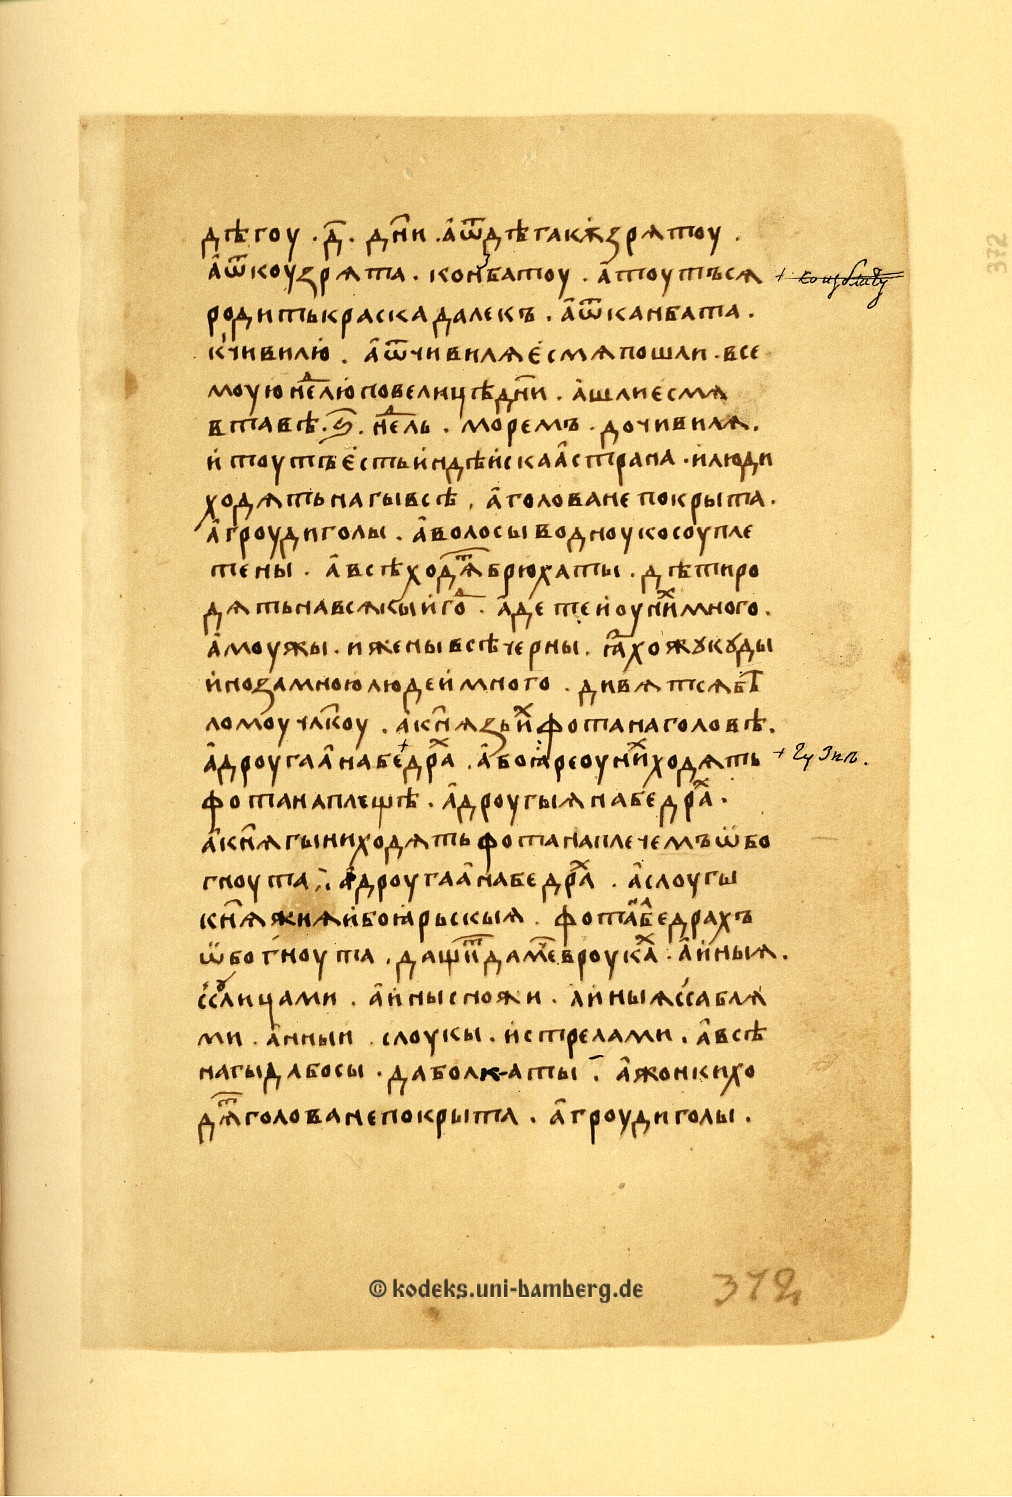 дѣгоу · д҃ · дн҃и · а ѿ дѣга к кꙋзрятоу ·
а ѿ коузрята · конбатоу · а тоутъ ся
+ конзблату
родить краска да лекъ · а ѿ канбата ·
к чивилю · а ѿ чивиля єсмя пошли · все
моую нⷣелю по велицѣ дн҃и · а шли есмя
в тавѣ · ѕ҃ · нⷣель · моремъ · до чивиля ·
и тоутъ єсть индѣиская страна · и люди
ходять нагы всѣ · а голова не покрыта ·
а гроуди голы · а волосы в одноу косоу пле
тены · а всѣ ходⷮя брюхаты · дѣти ро
дять на всякыи гоⷣ · а детеи оу ниⷯ много ·
а моужы · и жены всѣ черны · ꙗ хожꙋ кꙋды
ино за мною людеи много · дивятся бѣ
ломоу члк҃оу · а кн҃язь иⷯ фота на головѣ ·
а дроугаа на бедраⷯ · а боꙗре оу ниⷯ ходять
+ гузнѣ ·
фота на плещѣ · а дроугыя на бедраⷯ ·
а кн҃ягыни ходять фота на плечемъ ѡбо
гноута · а дроугаа на бедраⷯ · а слоугы
кн҃яжия и боꙗрьскыя · фота на бедрахъ
ѡбогноута · да щиⷮ да меⷱ в роукаⷯ · а иныя ·
с соулицами · а иныс ножи · а иныя с сабля
ми · а иныи с лоукы · и стрелами · а всѣ
нагы да босы · да болкаты · а жонки хо
дⷮя голова не покрыта · а гроуди голы ·
372
372
© kodeks.uni-bamberg.de